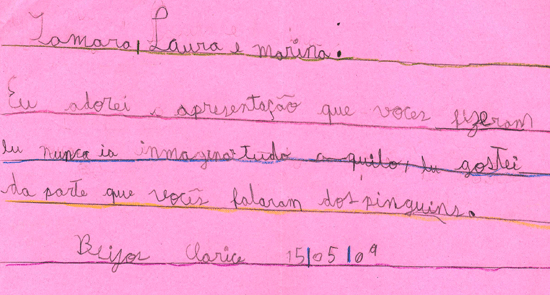 Tamara, Laura e marina.
Eu adorei a apresentação que voces fizeram
eu nunca ia inmaginar tudo a quilo, eu gostei
da parte que vocês falaram dos pinguins.
Beijos Clarice 15/05/09